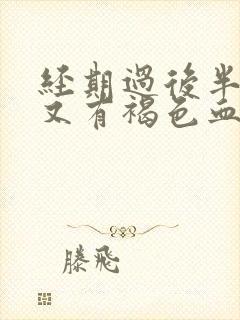 經期過後半
又有褐色血
滕飛